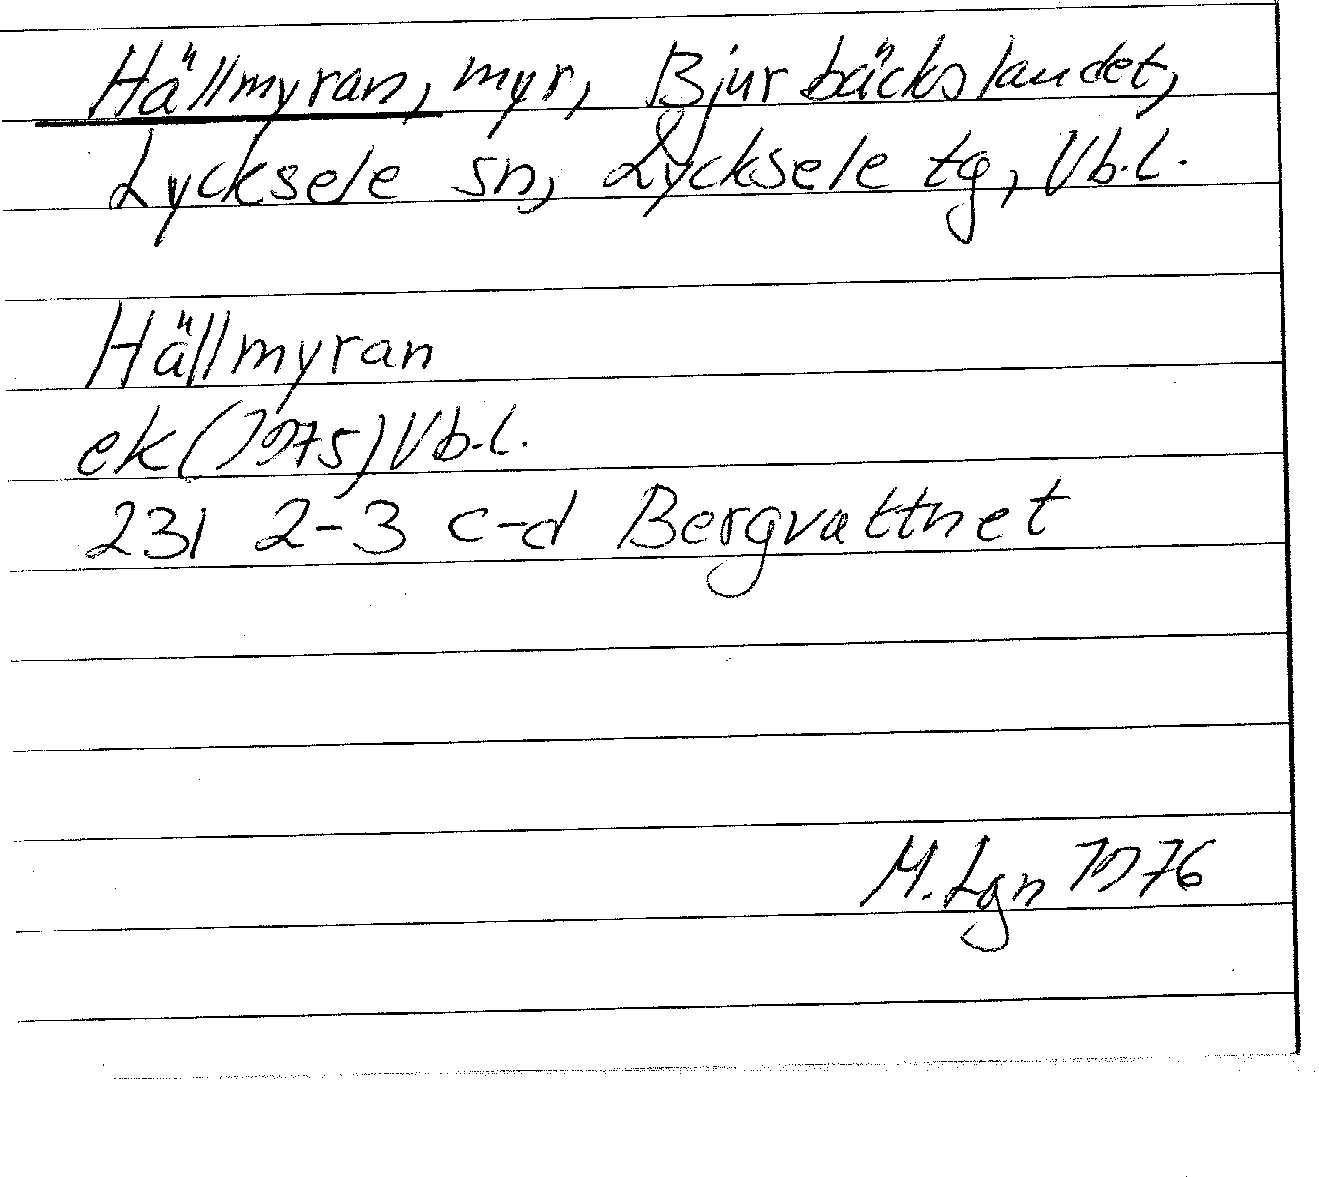 Hällmyran, myr, Bjurbäckslandet,
Lycksele sn, Lycksele tg, Vb.l.
Hällmyran
ek (1975) Vb.l.
231 2-3 c-d Bergvattnet
M. Lgn 1976